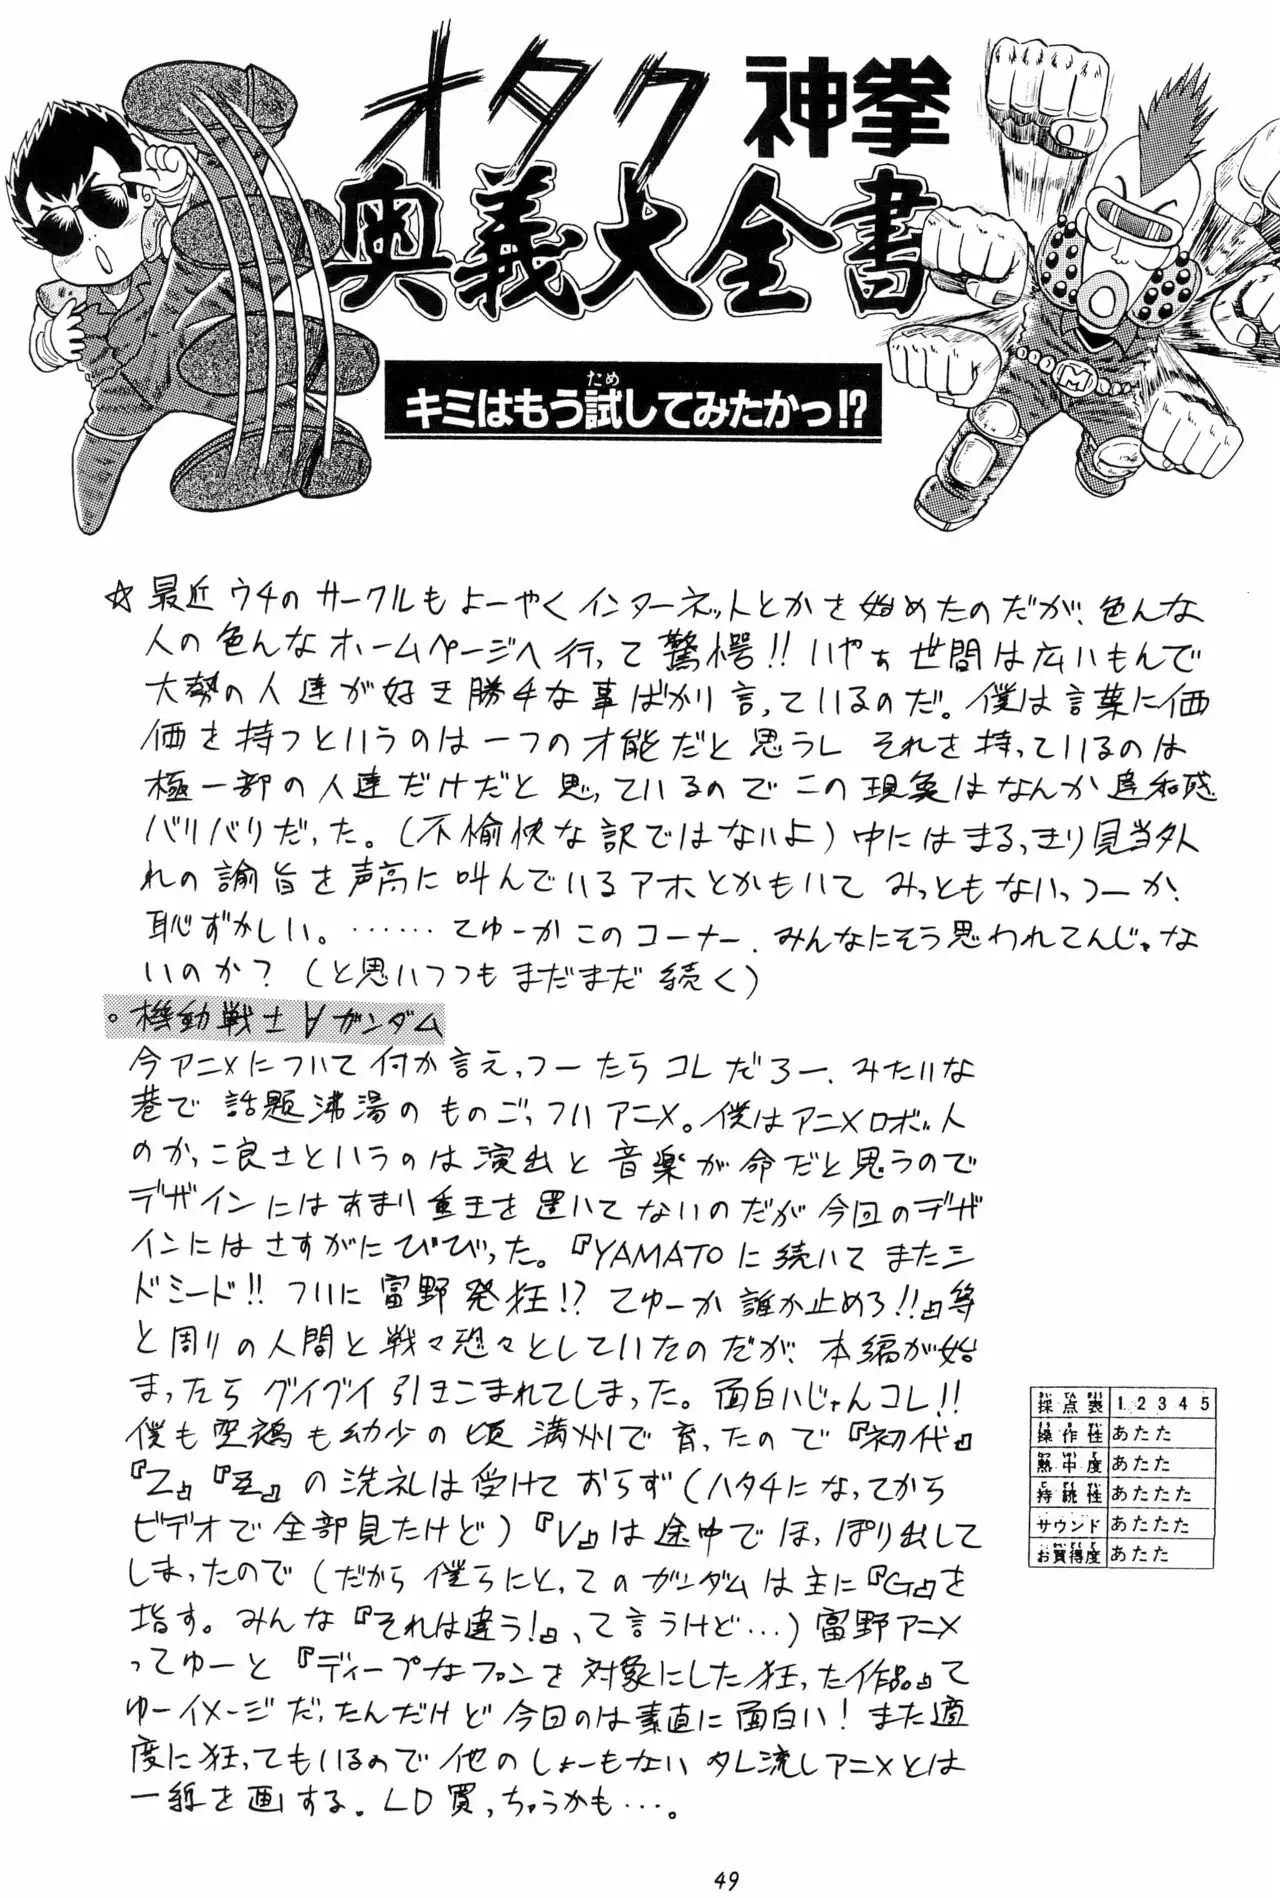 オタク神拳
奥義大全書
ため
キミはもう試してみたかっ!?
☆最近ウチのサークルもよーやくインターネットとかを始めたのだが、色んな
人の色んなホームページへ行って驚愕!!いやぁ世間は広いもんで
大勢の人達が好き勝手な事ばかり言っているのだ。僕は言葉に価
価を持つというのは一つの才能だと思うし それを持っているのは
極一部の人達だけだと思っているのでこの現象はなんか違和感
バリバリだった。(不愉快な訳ではないよ)中にはまるっきり見当外
れの諭旨を声高に叫んでいるアホとかもいて みっともないっつーか、
恥ずかしい。……てゆーかこのコーナー、みんなにそう思われてんじゃな
いのか?(と思いつつもまだまだ続く)
。機動戦士∀ガンダム
今アニメについて何か言えっつーたらコレだろー、みたいな
巷で話題沸湯のものごっついアニメ。僕はアニメロボット
のかっこ良さというのは演出と音楽が命だと思うので
デザインにはあまり重王を置いてないのだが今回のデザ
インにはさすがにびびった。『YAMATOに続いてまたシ
ドミード!!ついに富野発狂!?てゆーか誰か止めろ!!』等
と周りの人間と戦々恐々としていたのだが、本編が始
まったらグイグイ引きこまれてしまった。面白いじゃんコレ!!
僕も空鵺も幼少の頃満州で育ったので『初代』
『Z』『ZZ』の洗礼は受けておらず(ハタチになってから
ビデオで全部見たけど)『V』は途中でほっぽり出して
しまったので(だから僕らにとってのガンダムは主に『G』を
指す。みんな『それは違う!』って言うけど…)富野アニメ
ってゆーと『ディープなファンを対象にした狂った作品』て
ゆーイメージだったんだけど今回のは素直に面白い!また適
度に狂ってもいるので他のしょーもないタレ流しアニメとは
一線を画する。LD買っちゃうかも…。
採点表 1 2 3 4 5
操作性 あたた
熱中度 あたた
持続性 あたたた
サウンド あたたた
お買得度 あたた
M
49